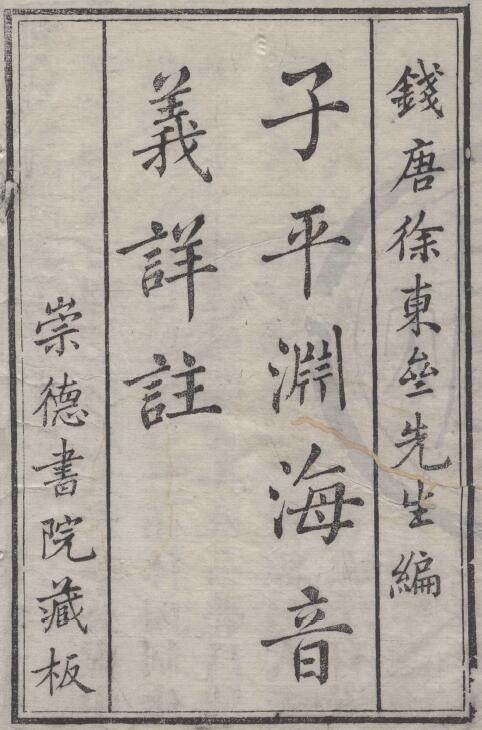 錢唐徐東叄先生編
子平淵海音
義詳註
崇德書院藏板